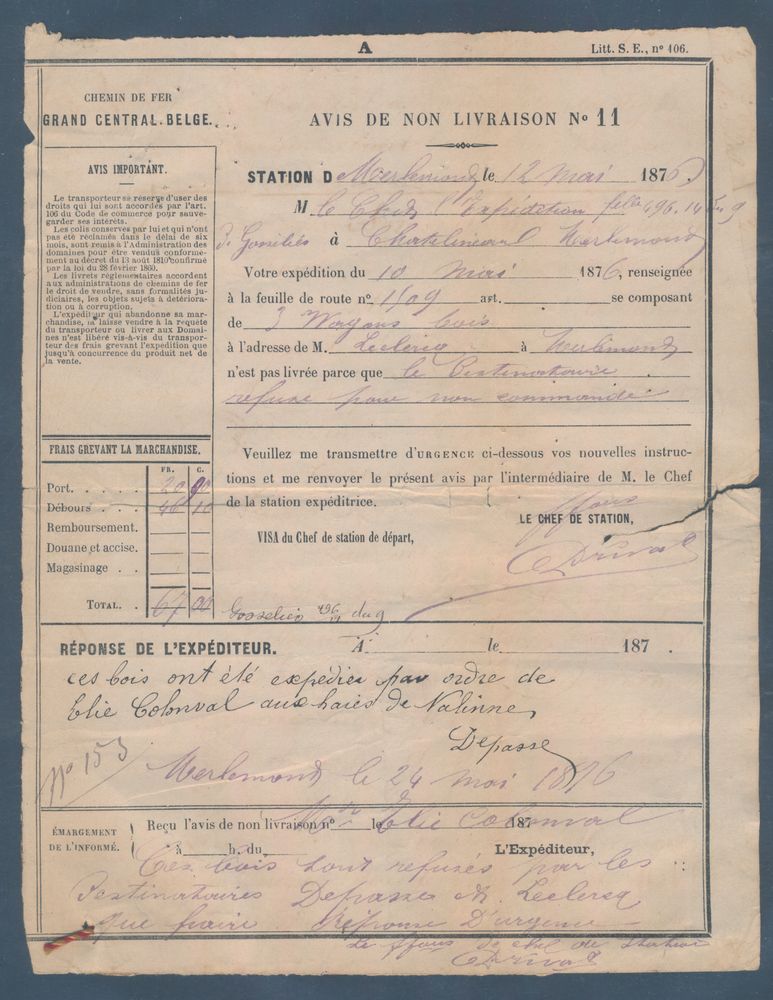 A
Litt. S. E., nº 106.
CHEMIN DE FER
GRAND CENTRAL-BELGE.
AVIS IMPORTANT.
Le transporteur se réserve d'user des
droits qui lui sont accordés par l'art.
106 du Code de commerce pour sauve-
garder ses intérêts.
Les colis conservés par lui et qui n'ont
pas été réclamés dans le délai de six
mois, sont remis à l'Administration des
domaines pour être vendus conformé-
ment au décret du 13 août 1810 confirmé
par la loi du 28 février 1860.
Les livrets réglementaires accordent
aux administrations de chemins de fer
le droit de vendre, sans formalités ju-
diciaires, les objets sujets à détériora-
tion ou à corruption.
L'expéditeur qui abandonne sa mar-
chandise, la laisse vendre à la requête
du transporteur ou livrer aux Domai-
nes n'est libéré vis-à-vis du transpor-
teur des frais grevant l'expédition que
jusqu'à concurrence du produit net de
la vente.
AVIS DE NON LIVRAISON Nº 11
STATION D Merlemond le 12 Mai 1876.
M le Chef Expédition 496.14 9
à Chatelineau Merlemond
Votre expédition du 10 Mai 1876, renseignée
à la feuille de route nº 1509 art. se composant
de 3 Wagons bois
à l'adresse de M. Leclercq à Merlemond
n'est pas livrée parce que le Destinataire
refuse pour non commande
Veuillez me transmettre d'URGENCE ci-dessous vos nouvelles instruc-
tions et me renvoyer le présent avis par l'intermédiaire de M. le Chef
de la station expéditrice.
LE CHEF DE STATION,
VISA du Chef de station de départ,
FRAIS GREVANT LA MARCHANDISE.
FR. C.
Port. 20 90
Débours 46 10
Remboursement.
Douane et accise.
Magasinage
TOTAL. 67 00
Gosselies 496 du 9
RÉPONSE DE L'EXPÉDITEUR.
A le 187 .
ces bois ont été expédiés par ordre de
Elie Colonval aux haies de Nalinne,
Depasse
Nº 153
Merlemond le 24 Mai 1876
Elie Colonval
ÉMARGEMENT
DE L'INFORMÉ.
Reçu l'avis de non livraison nº le 187
à h. du
L'Expéditeur,
Ces bois sont refusés par les
Destinataires Depasse & Leclercq
que faire Réponse D'urgence
Le ffons de chef de station